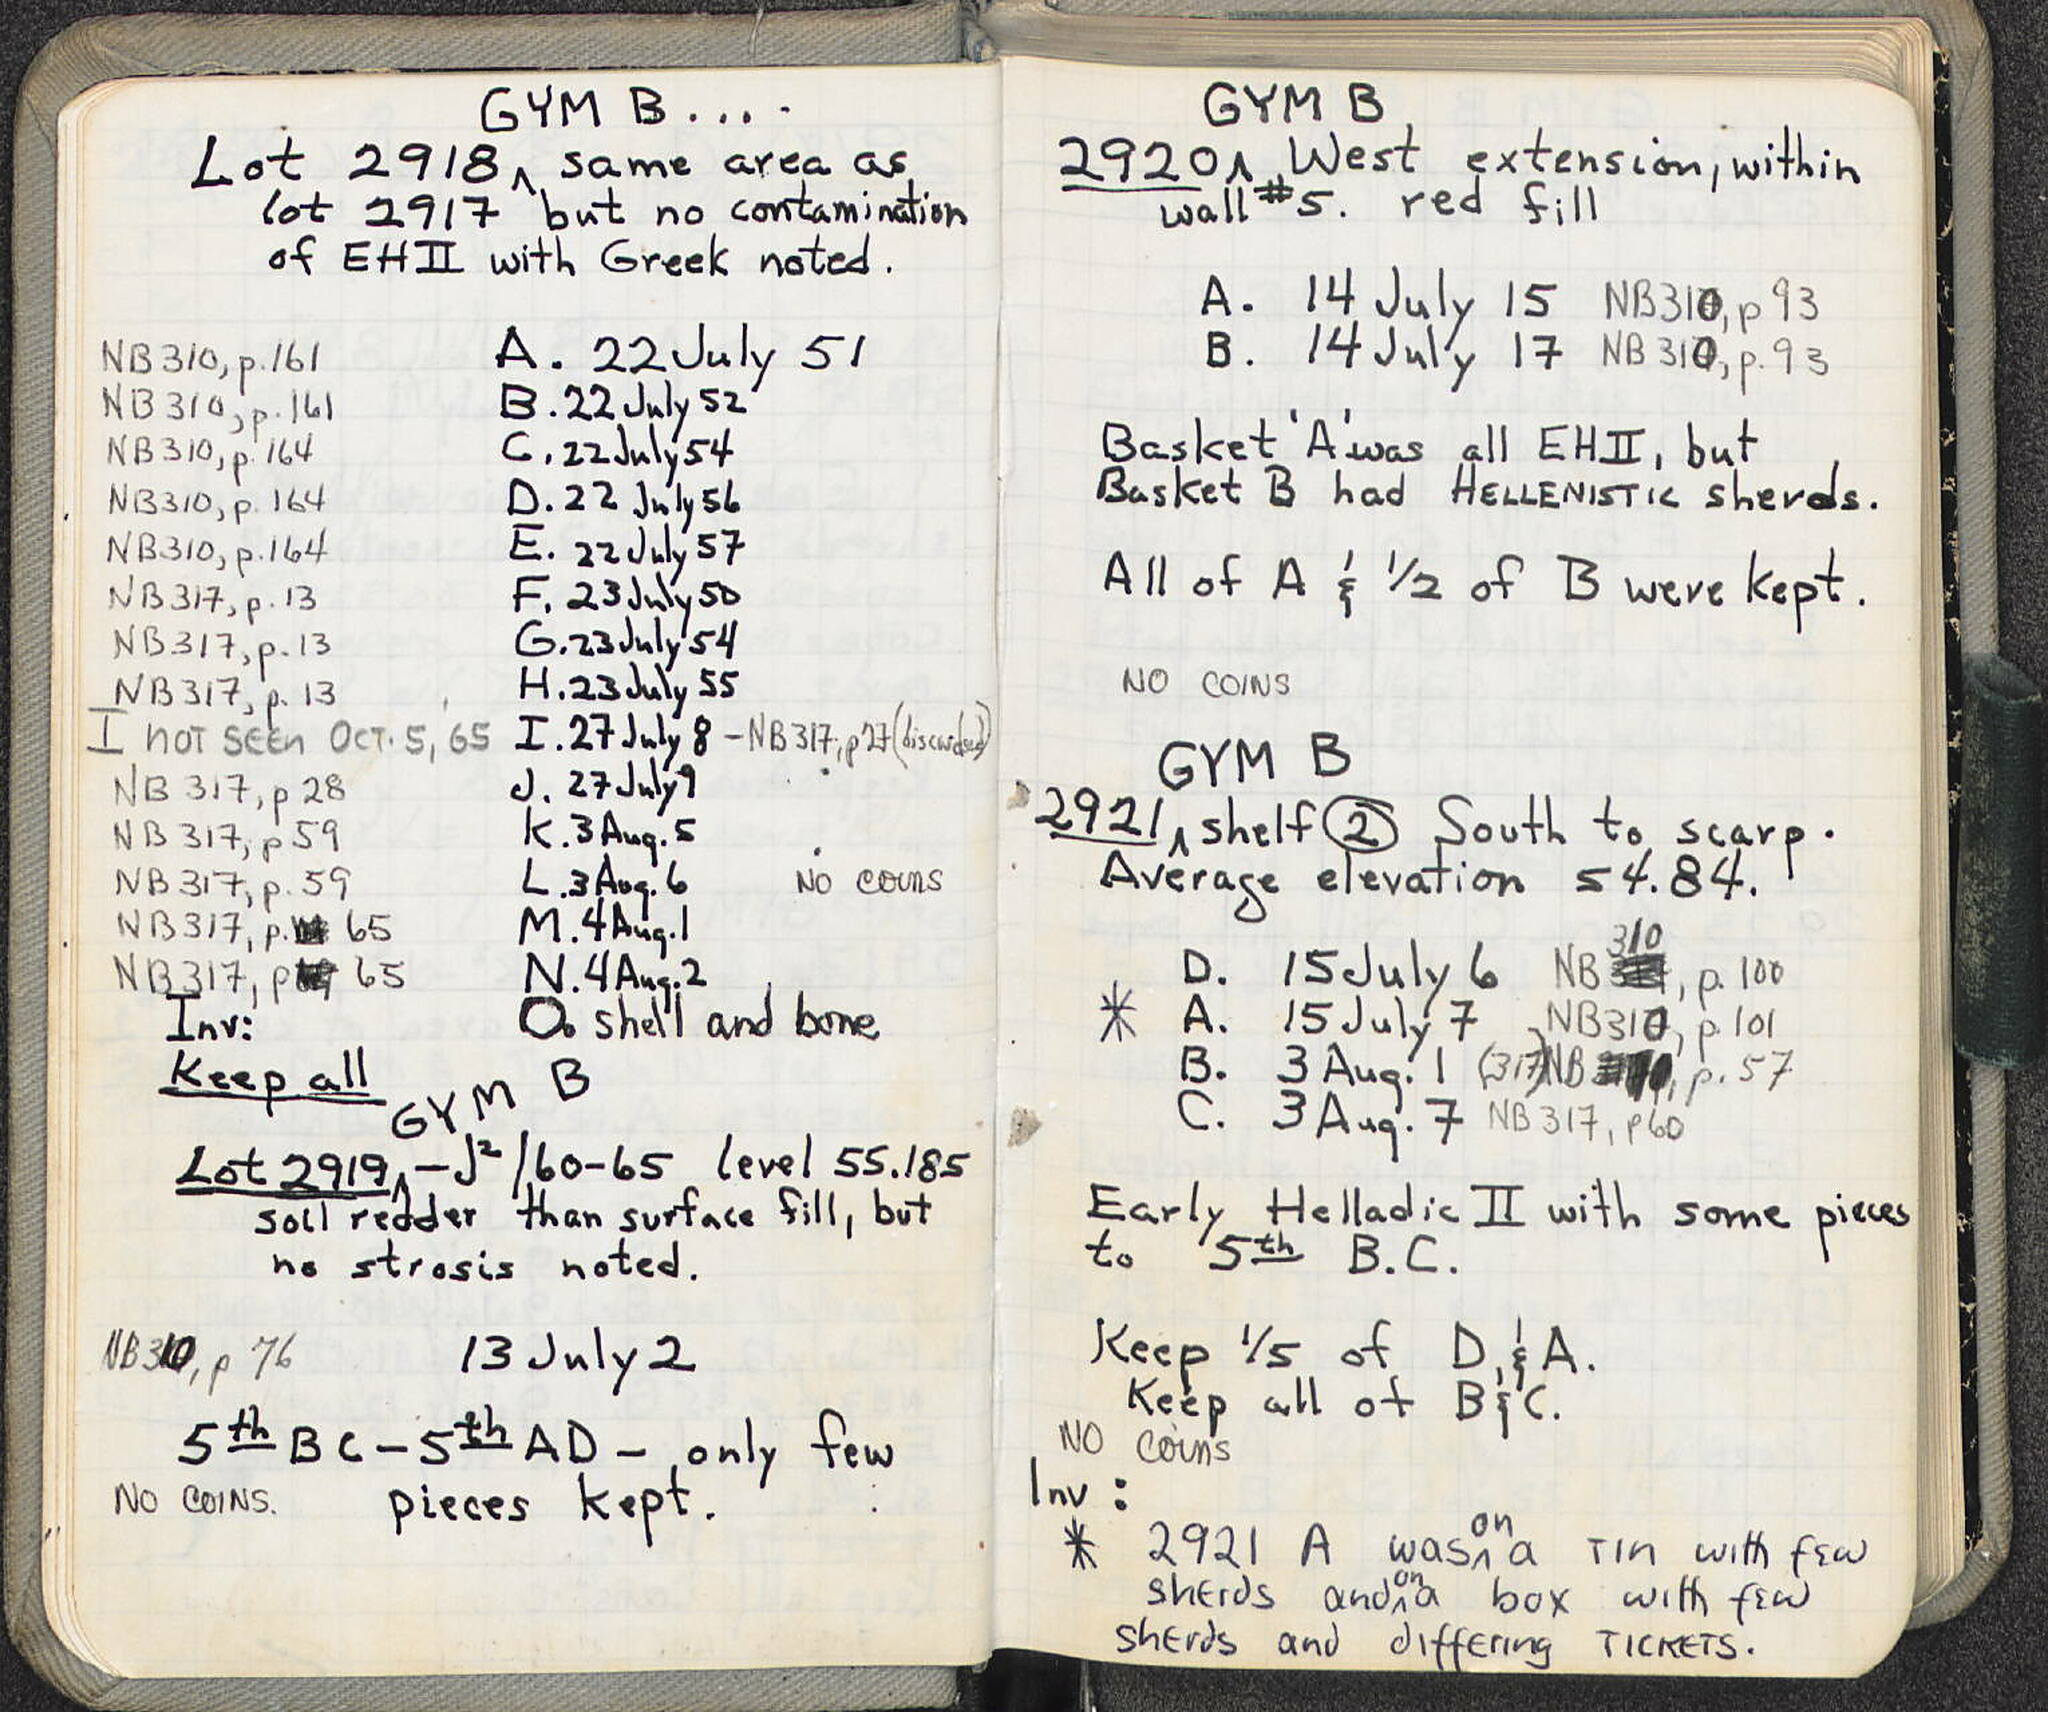 GYM B....
Lot 2918, same area as
lot 2917 but no contamination
of EH II with Greek noted.
NB 310, p. 161 A. 22 July 51
NB 310, p. 161 B. 22 July 52
NB 310, p. 164 C. 22 July 54
NB 310, p. 164 D. 22 July 56
NB 310, p. 164 E. 22 July 57
NB 317, p. 13 F. 23 July 50
NB 317, p. 13 G. 23 July 54
NB 317, p. 13 H. 23 July 55
I not seen Oct. 5, 65 I. 27 July 8 - NB 317, p 27 (discarded)
NB 317, p 28 J. 27 July 9
NB 317, p 59 K. 3 Aug. 5
NB 317, p. 59 L. 3 Aug. 6 NO COINS
NB 317, p. 65 M. 4 Aug. 1
NB 317, p 65 N. 4 Aug. 2
Inv: O. shell and bone
Keep all
GYM B
Lot 2919 - J² / 60-65 level 55.185
soil redder than surface fill, but
no strosis noted.
NB 310, p 76 13 July 2
5th BC - 5th AD - only few
NO COINS. pieces kept.
GYM B
2920, West extension, within
wall #5. red fill
A. 14 July 15 NB310, p 93
B. 14 July 17 NB 310, p. 93
Basket 'A' was all EH II, but
Basket B had HELLENISTIC sherds.
All of A & 1/2 of B were kept.
NO COINS
GYM B
2921, shelf 2 South to scarp.
Average elevation 54.84.
D. 15 July 6 NB 310, p. 100
* A. 15 July 7 NB310, p. 101
B. 3 Aug. 1 (317) NB, p. 57
C. 3 Aug. 7 NB 317, p 60
Early Helladic II with some pieces
to 5th B.C.
Keep 1/5 of D, & A.
Keep all of B & C.
NO COINS
Inv:
* 2921 A was on a TIN with few
sherds and on a box with few
sherds and differing TICKETS.